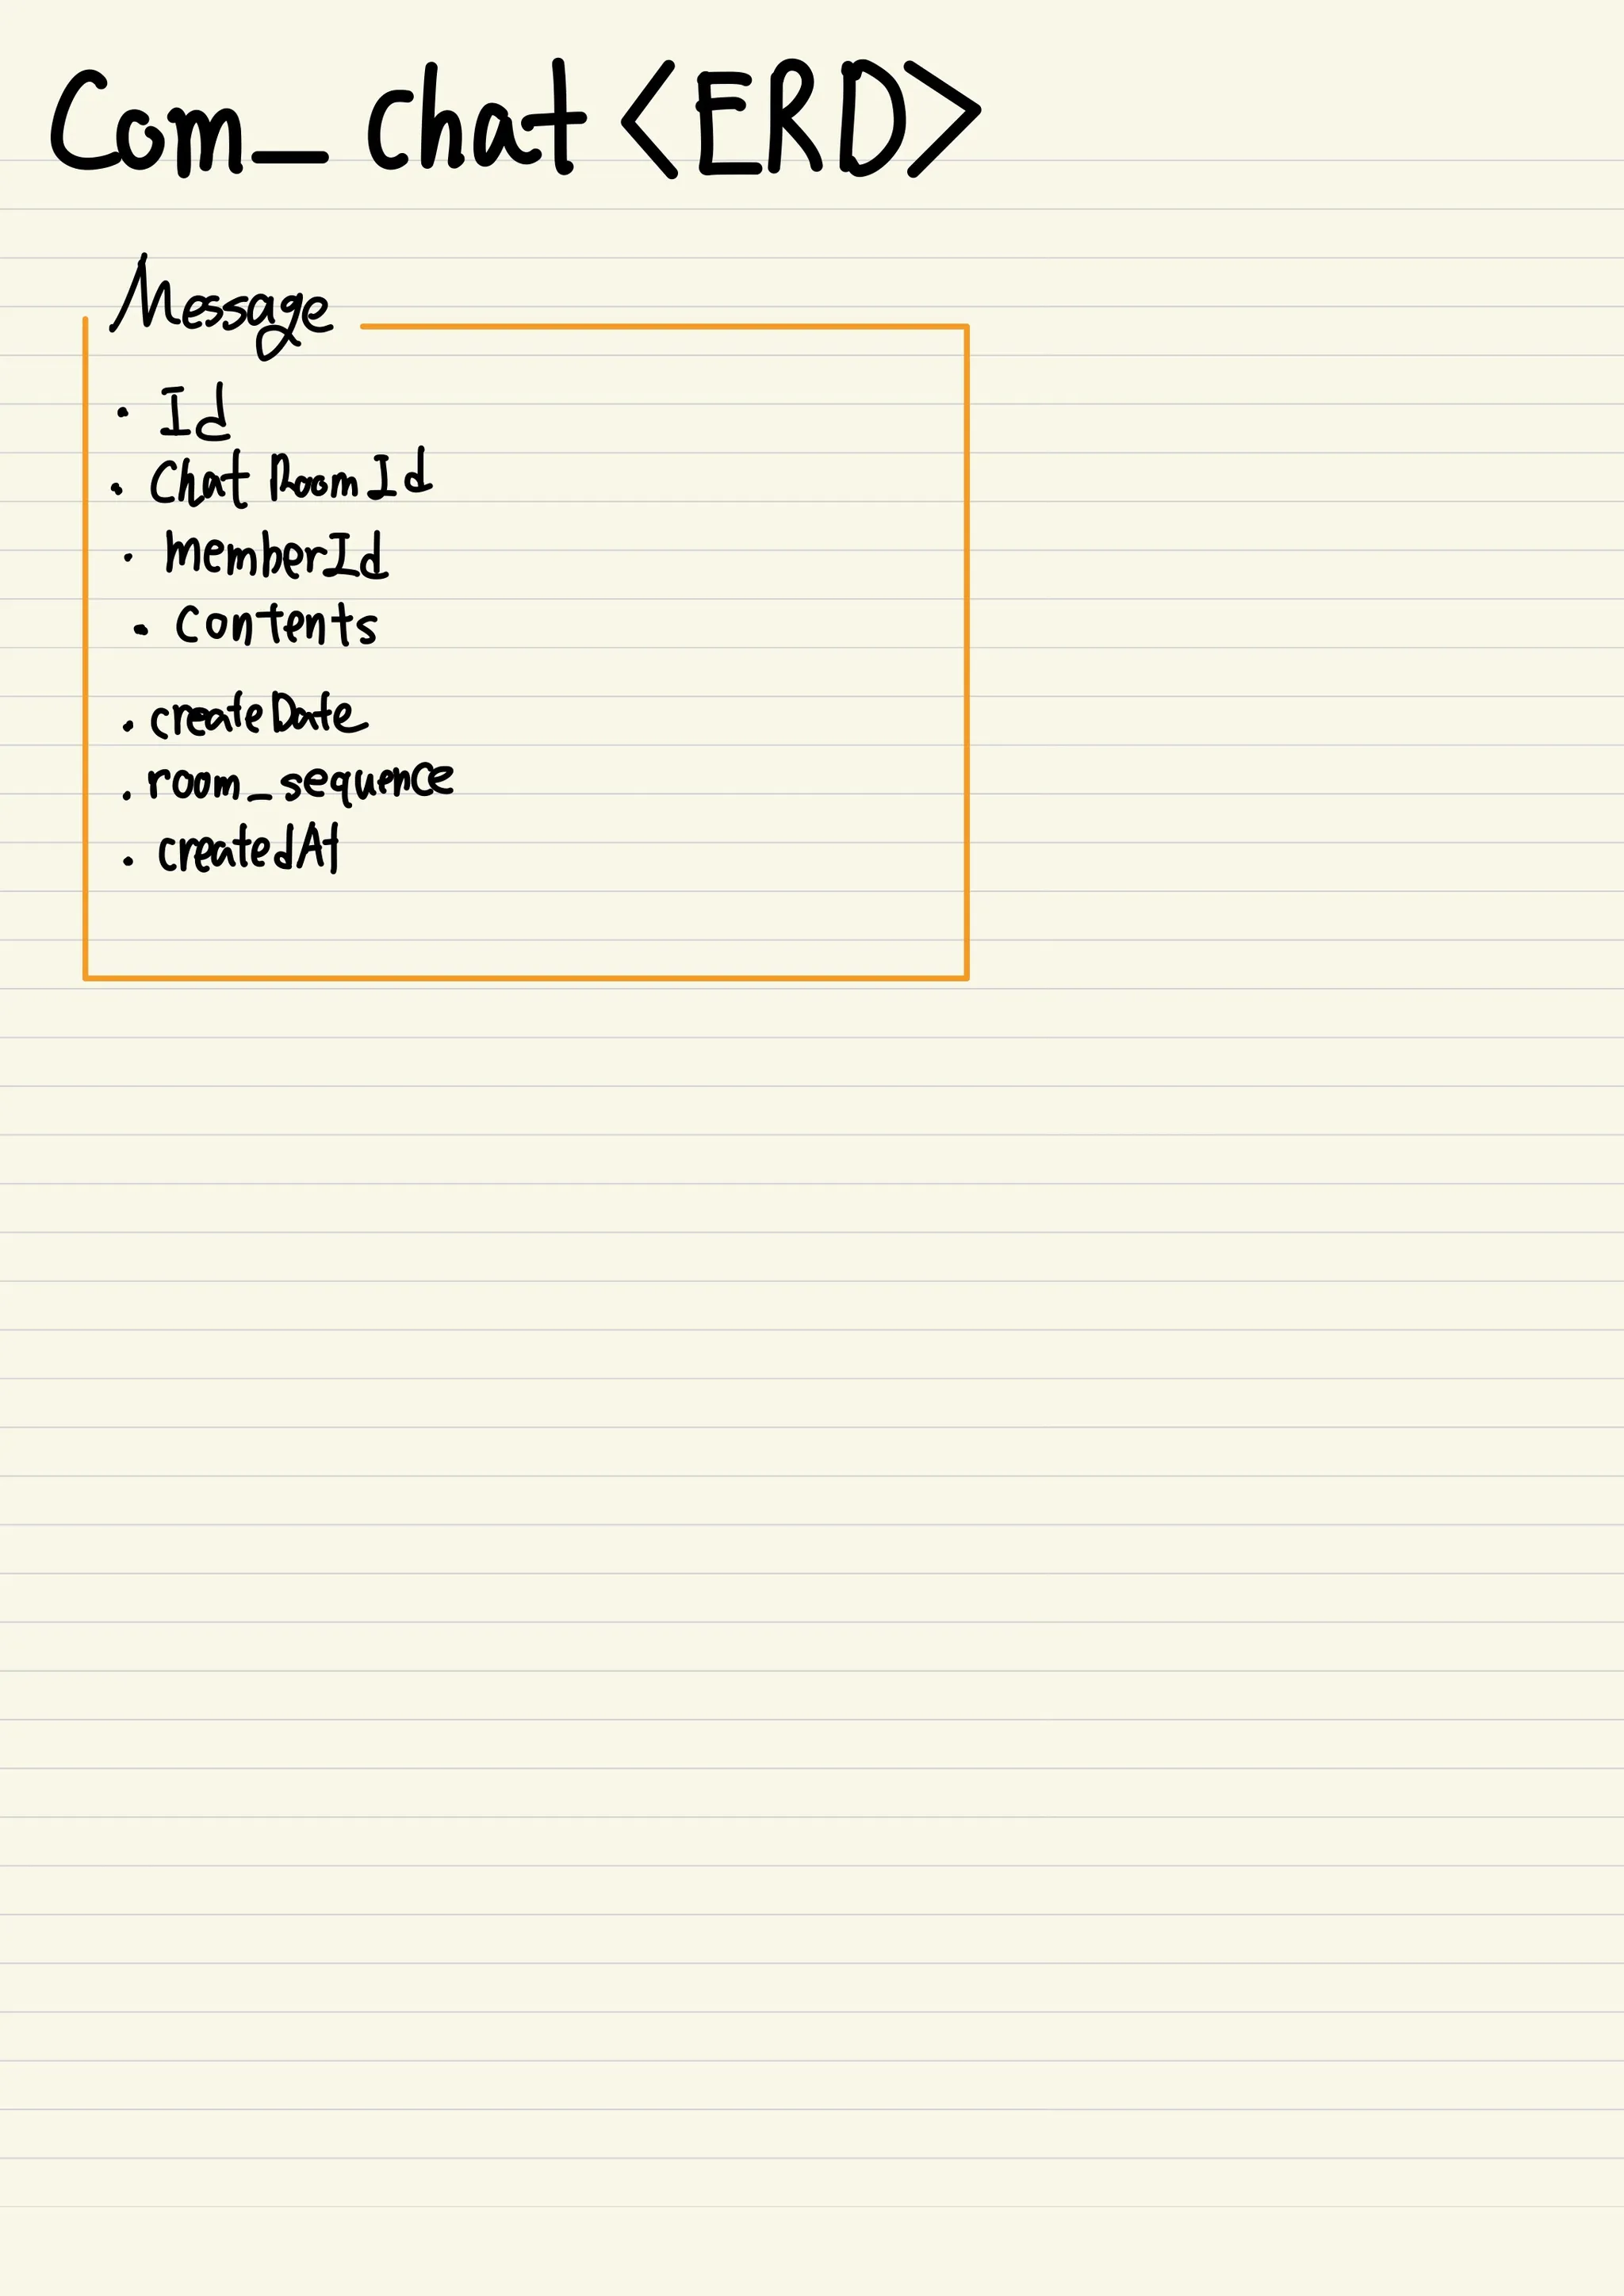 Com_ chat <ERD>
Message
· Id
· Chat RoomId
· memberId
· contents
· createDate
· room_sequnce
· createdAt